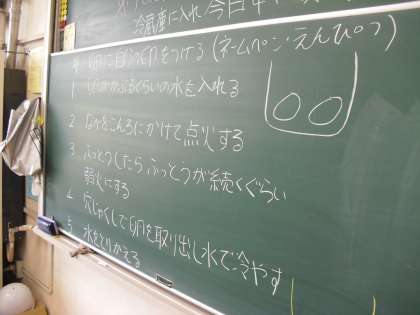 冷蔵庫に入れ 今日中に
卵に自分の印をつける(ネームペン・えんぴつ)
1. 卵がかぶるくらいの水を入れる
2. なべをこんろにかけて点火する
3. ふっとうしたらふっとうが続くぐらい
弱火にする
4. 穴じゃくしで卵を取り出し水で冷やす
5. 水をとりかえる